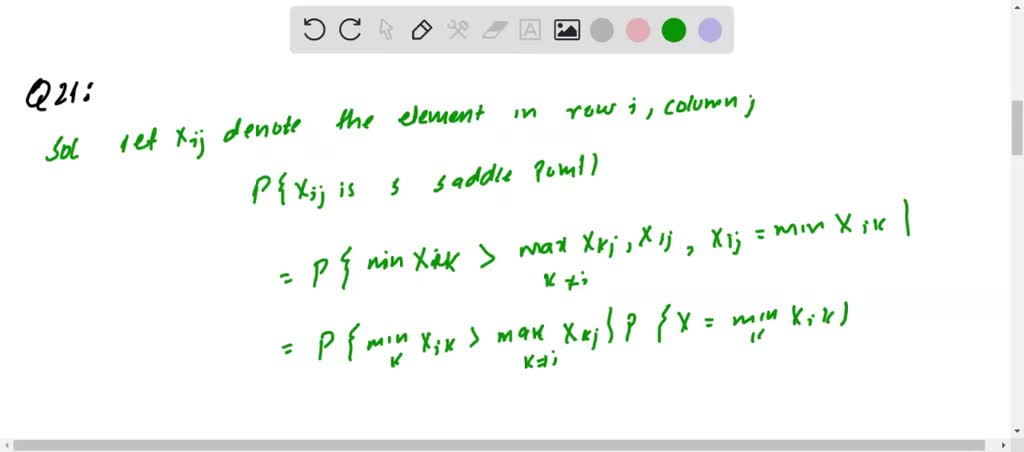 Q21:
Sol let Xij denote the element in row i, column j
P{Xij is s saddle Point)
= P{ min Xik > max Xkj, Xij, Xij = min Xik |
k≠i
= P{min Xik > max Xkj} P {X = min Xik)
k k≠i k